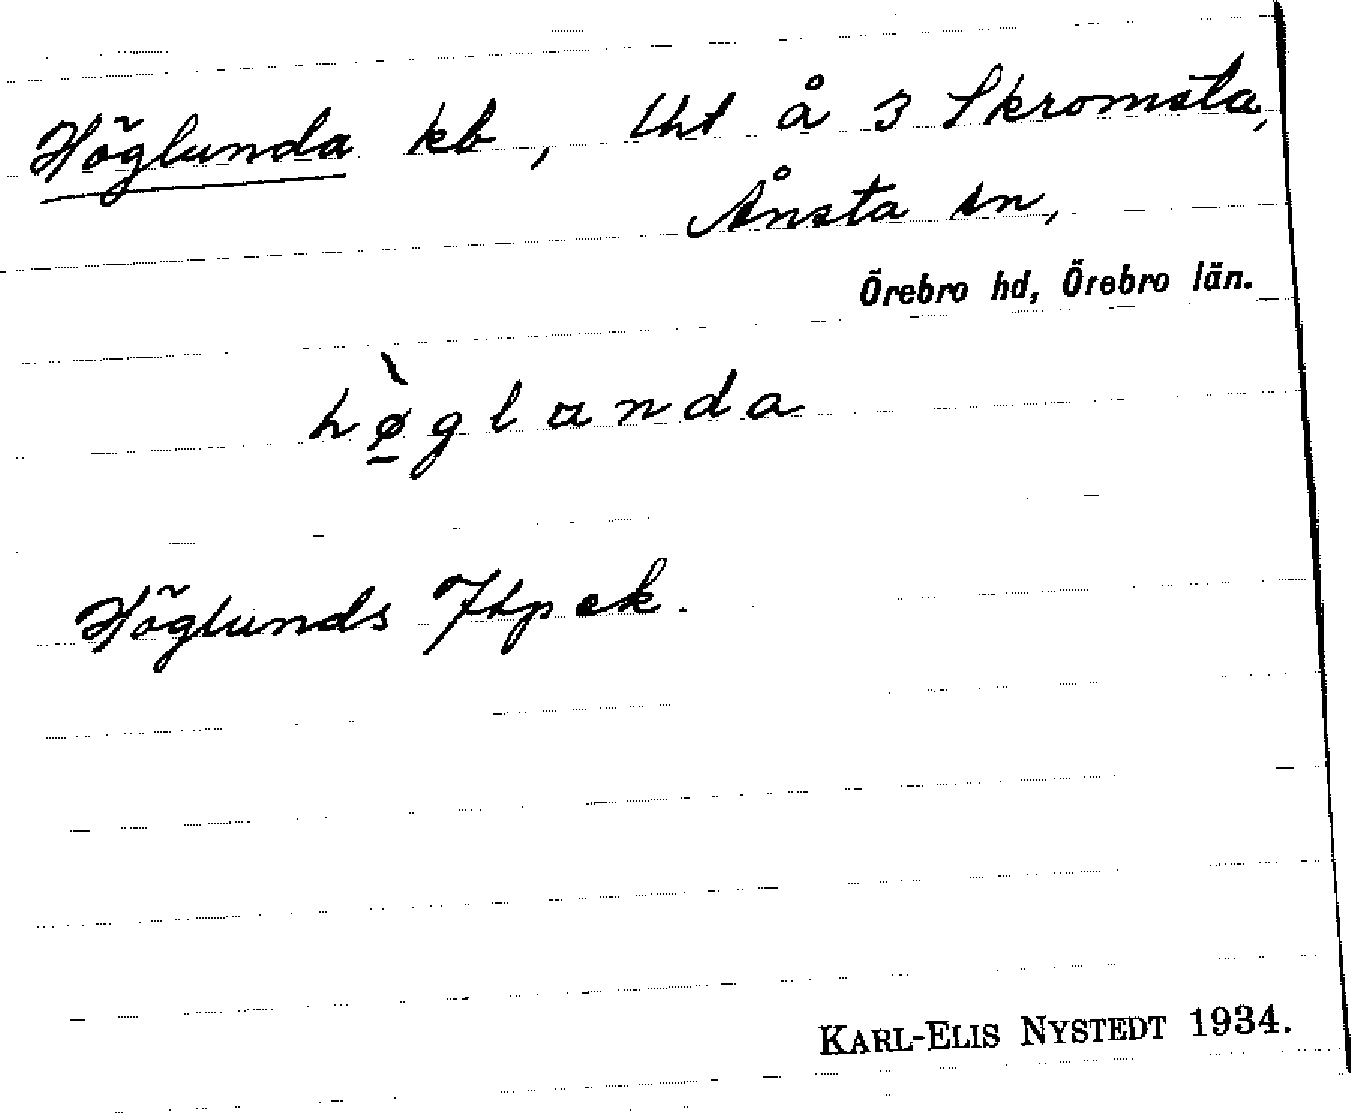 Höglunda kb, Uht å 3 Skromsta,
Ånsta sn,
Örebro hd, Örebro län.
hø̀glanda
Höglunds Jbpek.
KARL-ELIS NYSTEDT 1934.